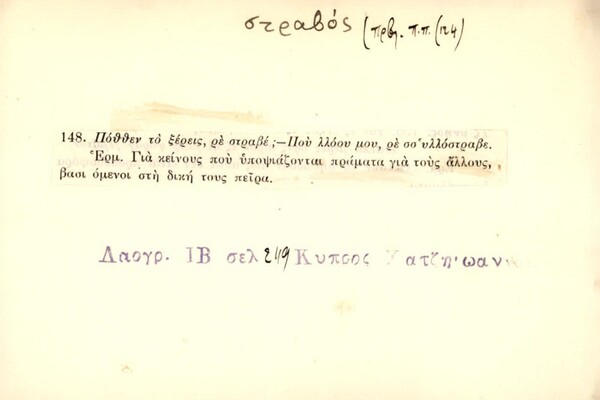 στραβός (πρβλ. π.π. (124)
148. Πόθθεν τὸ ξέρεις, ρὲ στραβέ ;—Ποὺ λλόου μου, ρὲ σσ̌υλλόστραβε.
Ἑρμ. Γιὰ κείνους ποὺ ὑποψιάζονται πράματα γιὰ τοὺς ἄλλους,
βασι όμενοι στὴ δική τους πεῖρα.
Λαογρ. ΙΒ σελ 249 Κυπρος Χατζη'ωανν